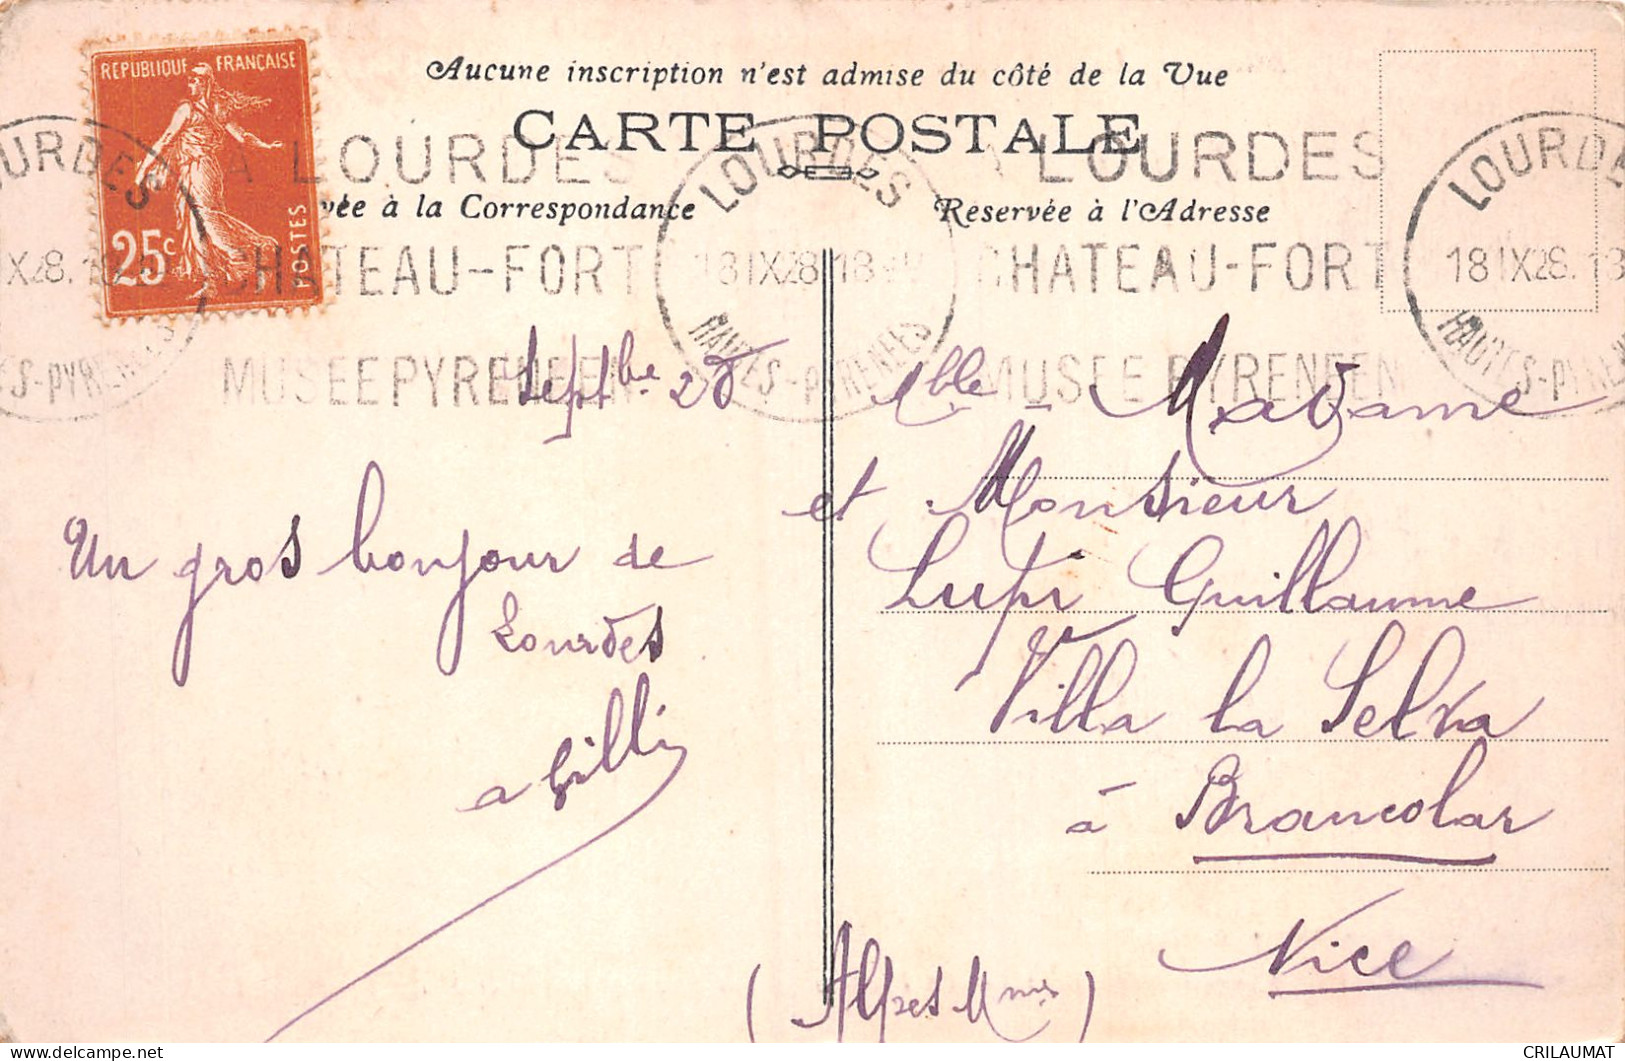 Aucune inscription n'est admise du côté de la Vue
CARTE POSTALE
vée à la Correspondance
Reservée à l'Adresse
REPUBLIQUE FRANÇAISE
25c
POSTES
LOURDES
18 IX 28. 18
HAUTES-PYRENEES
A LOURDES
CHATEAU-FORT
MUSEE PYRENEEN
LOURDES
18 IX 28. 18
HAUTES-PYRENEES
A LOURDES
CHATEAU-FORT
MUSEE PYRENEEN
LOURDES
18 IX 28. 18
HAUTES-PYRENEES
Septbre 28
Un gros bonjour de
Lourdes
a Gilli
Mble Madame
et Monsieur
Lupi Guillaume
Villa la Selva
à Brancolar
Nice
(Alpes Mmes)
CRILAUMAT